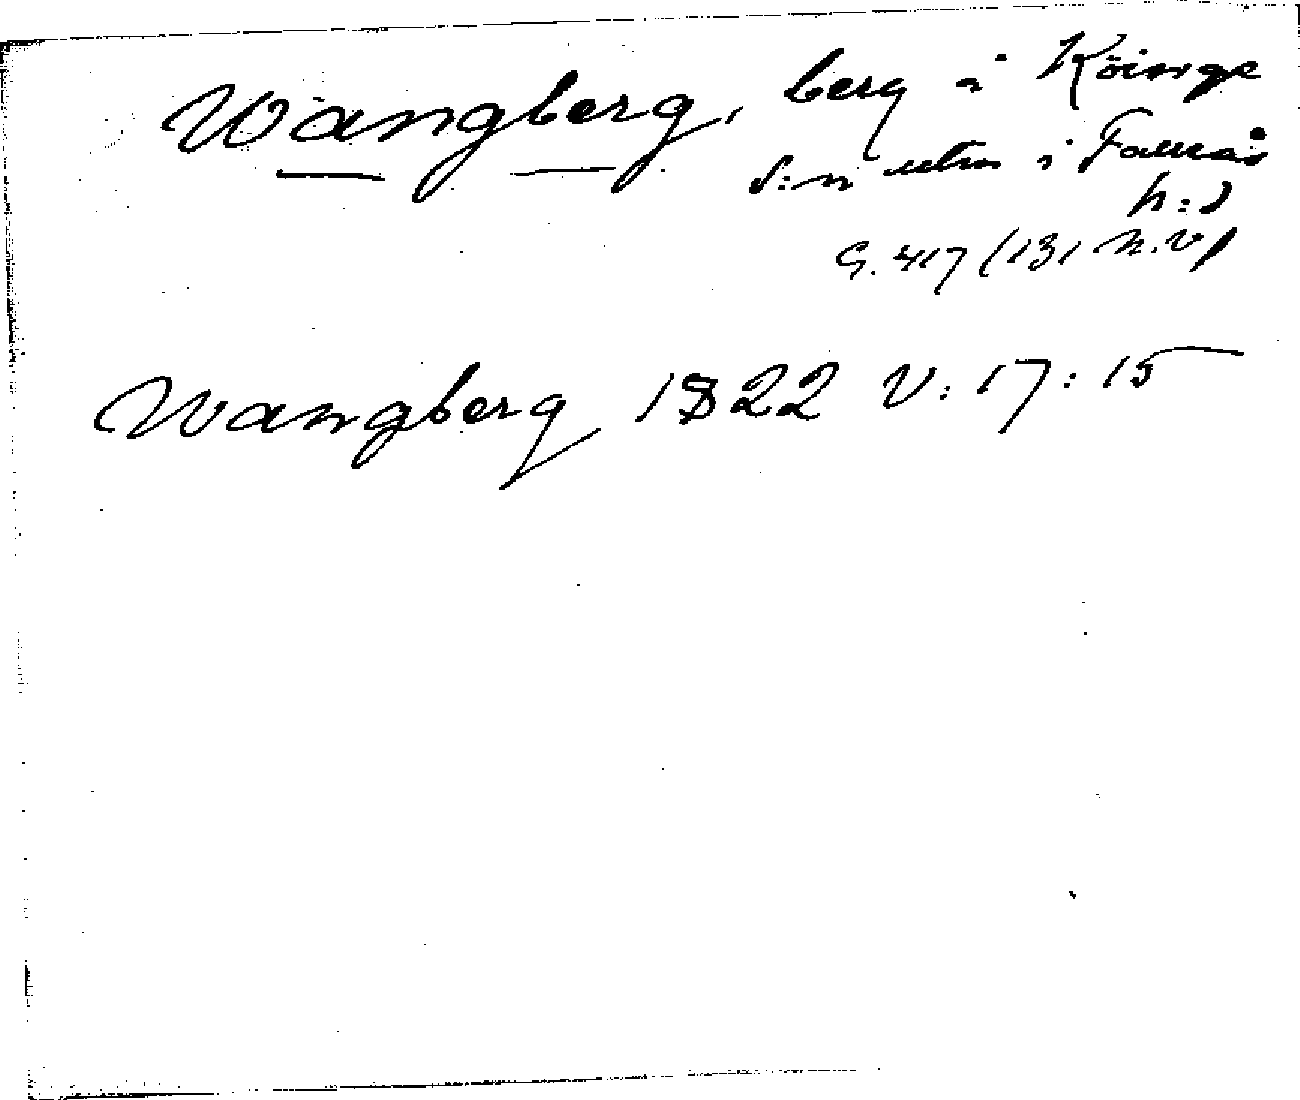 Wangberg, berg i Köinge
s:n utm i Faurås
h:d
G. 417 (131 N.V)
Wangberg 1822 V: 17: 15